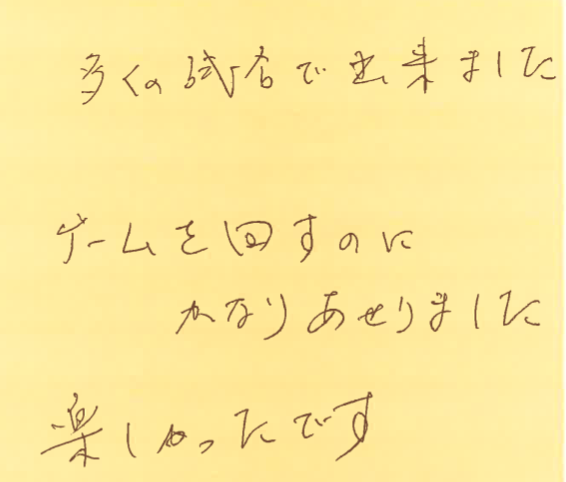 多くの試合で出来ました
ゲームを回すのに
かなりあせりました
楽しかったです